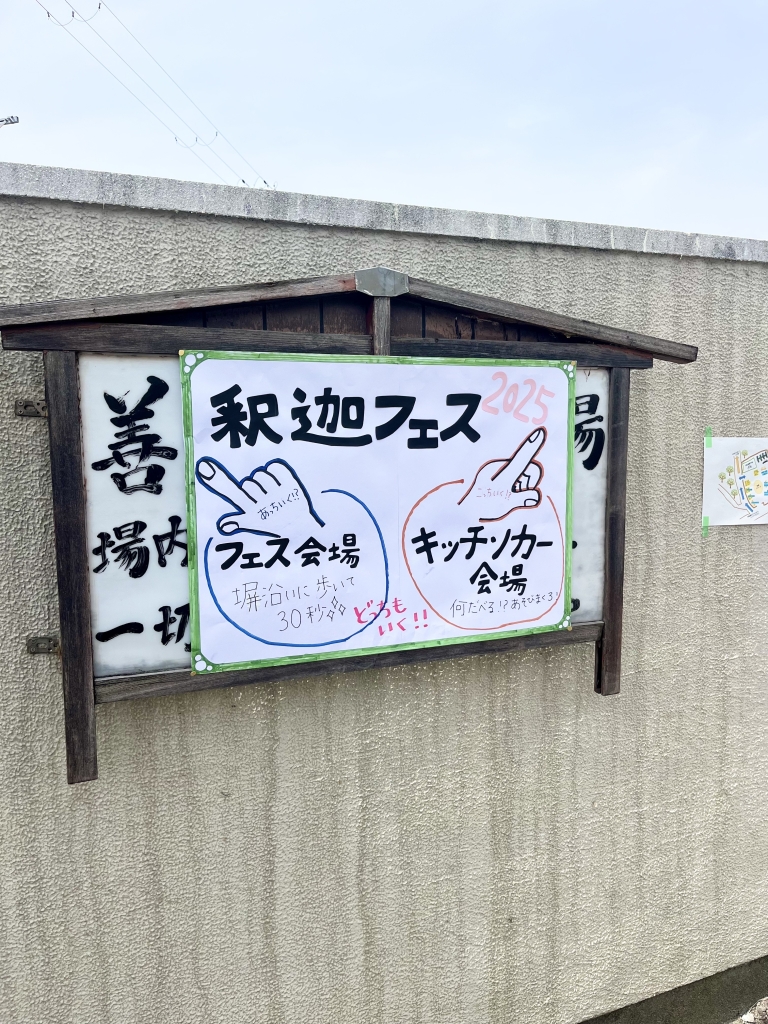 釈迦フェス 2025
あっちいく!?
フェス会場
塀沿いに歩いて
30秒
こっちいく!?
キッチンカー
会場
何たべる!?あそびまくろ!
どっちも
いく!!
善
場
場内
一切